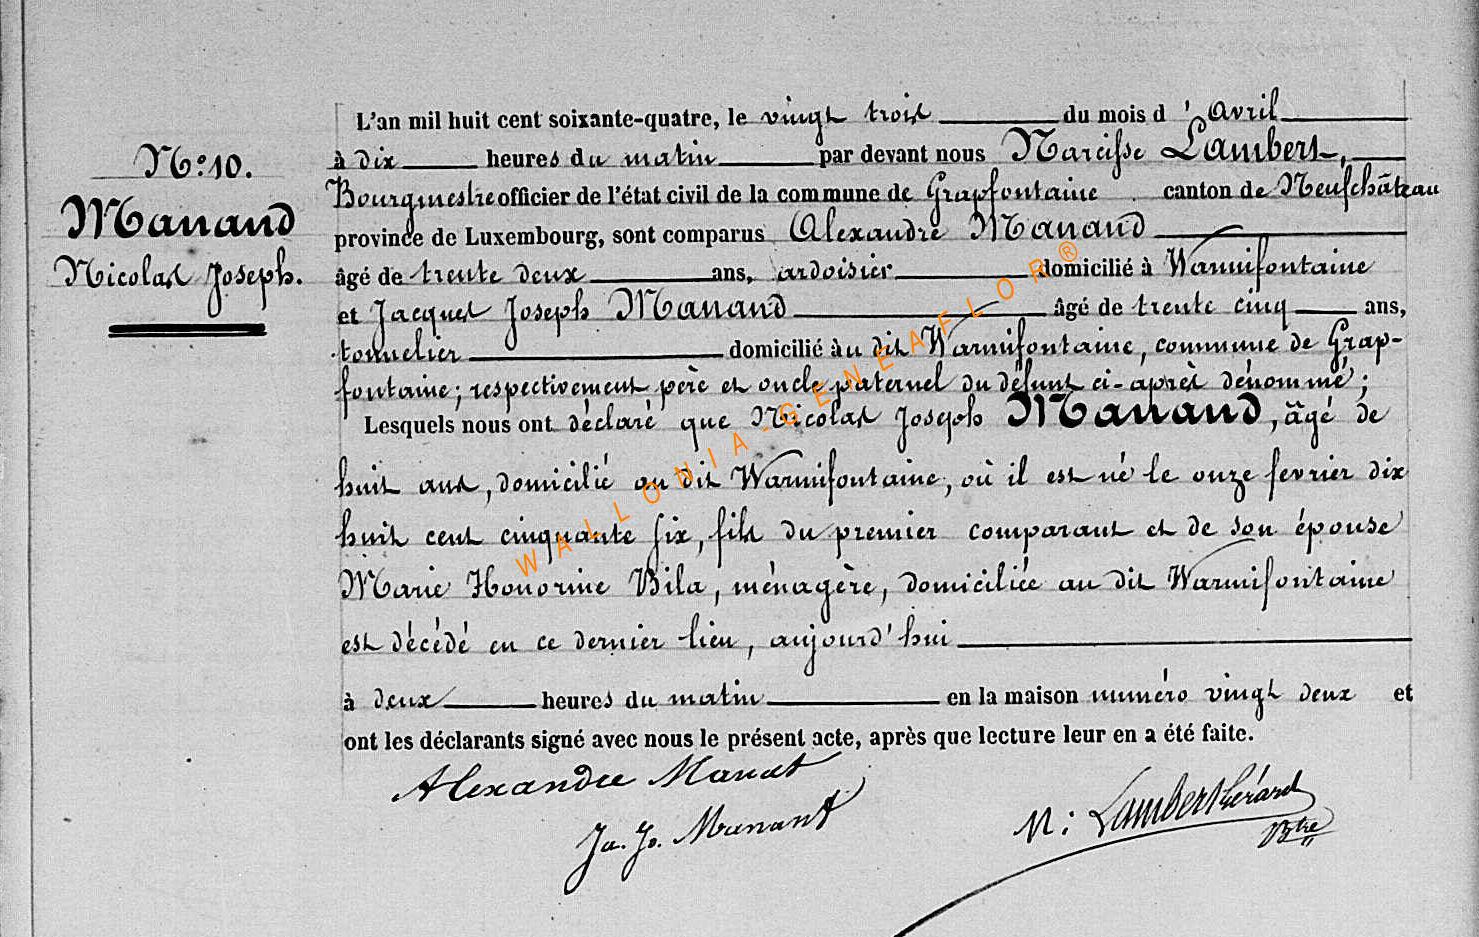 N:10.
Manand
Nicolas Joseph.
L'an mil huit cent soixante-quatre, le vingt trois du mois d' avril
à dix heures du matin par devant nous Narcisse Lambert,
Bourgmestre officier de l'état civil de la commune de Grapfontaine canton de Neufchâteau
province de Luxembourg, sont comparus Alexandre Manand
âgé de trente deux ans, ardoisier domicilié à Warmifontaine
et Jacques Joseph Manand âgé de trente cinq ans,
tonnelier domicilié àu dit Warmifontaine, commune de Grap-
fontaine; respectivement père et oncle paternel du défunt ci-après dénommé;
Lesquels nous ont déclaré que Nicolas Joseph Manand, âgé de
huit ans, domicilié au dit Warmifontaine, où il est né le onze fevrier dix
huit cent cinquante six, fils du premier comparant et de son épouse
Marie Honorine Bila, ménagère, domiciliée au dit Warmifontaine
est décédé en ce dernier lieu, aujourd'hui
à deux heures du matin en la maison numéro vingt deux et
ont les déclarants signé avec nous le présent acte, après que lecture leur en a été faite.
Alexandre Manat
Ja. Jo. Manant
N: Lambert Gérard
Btre
WALLONIA-GENEAFLOR®